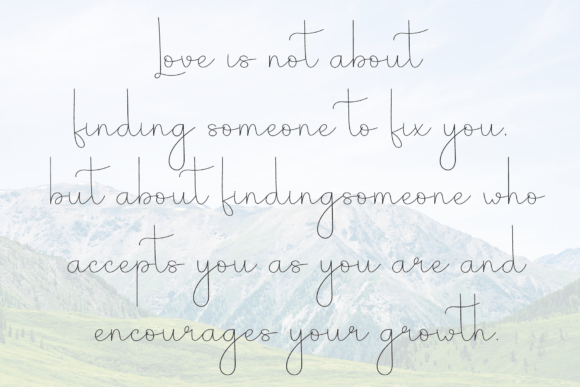 Love is not about
finding someone to fix you.
but about findingsomeone who
accepts you as you are and
encourages your growth.